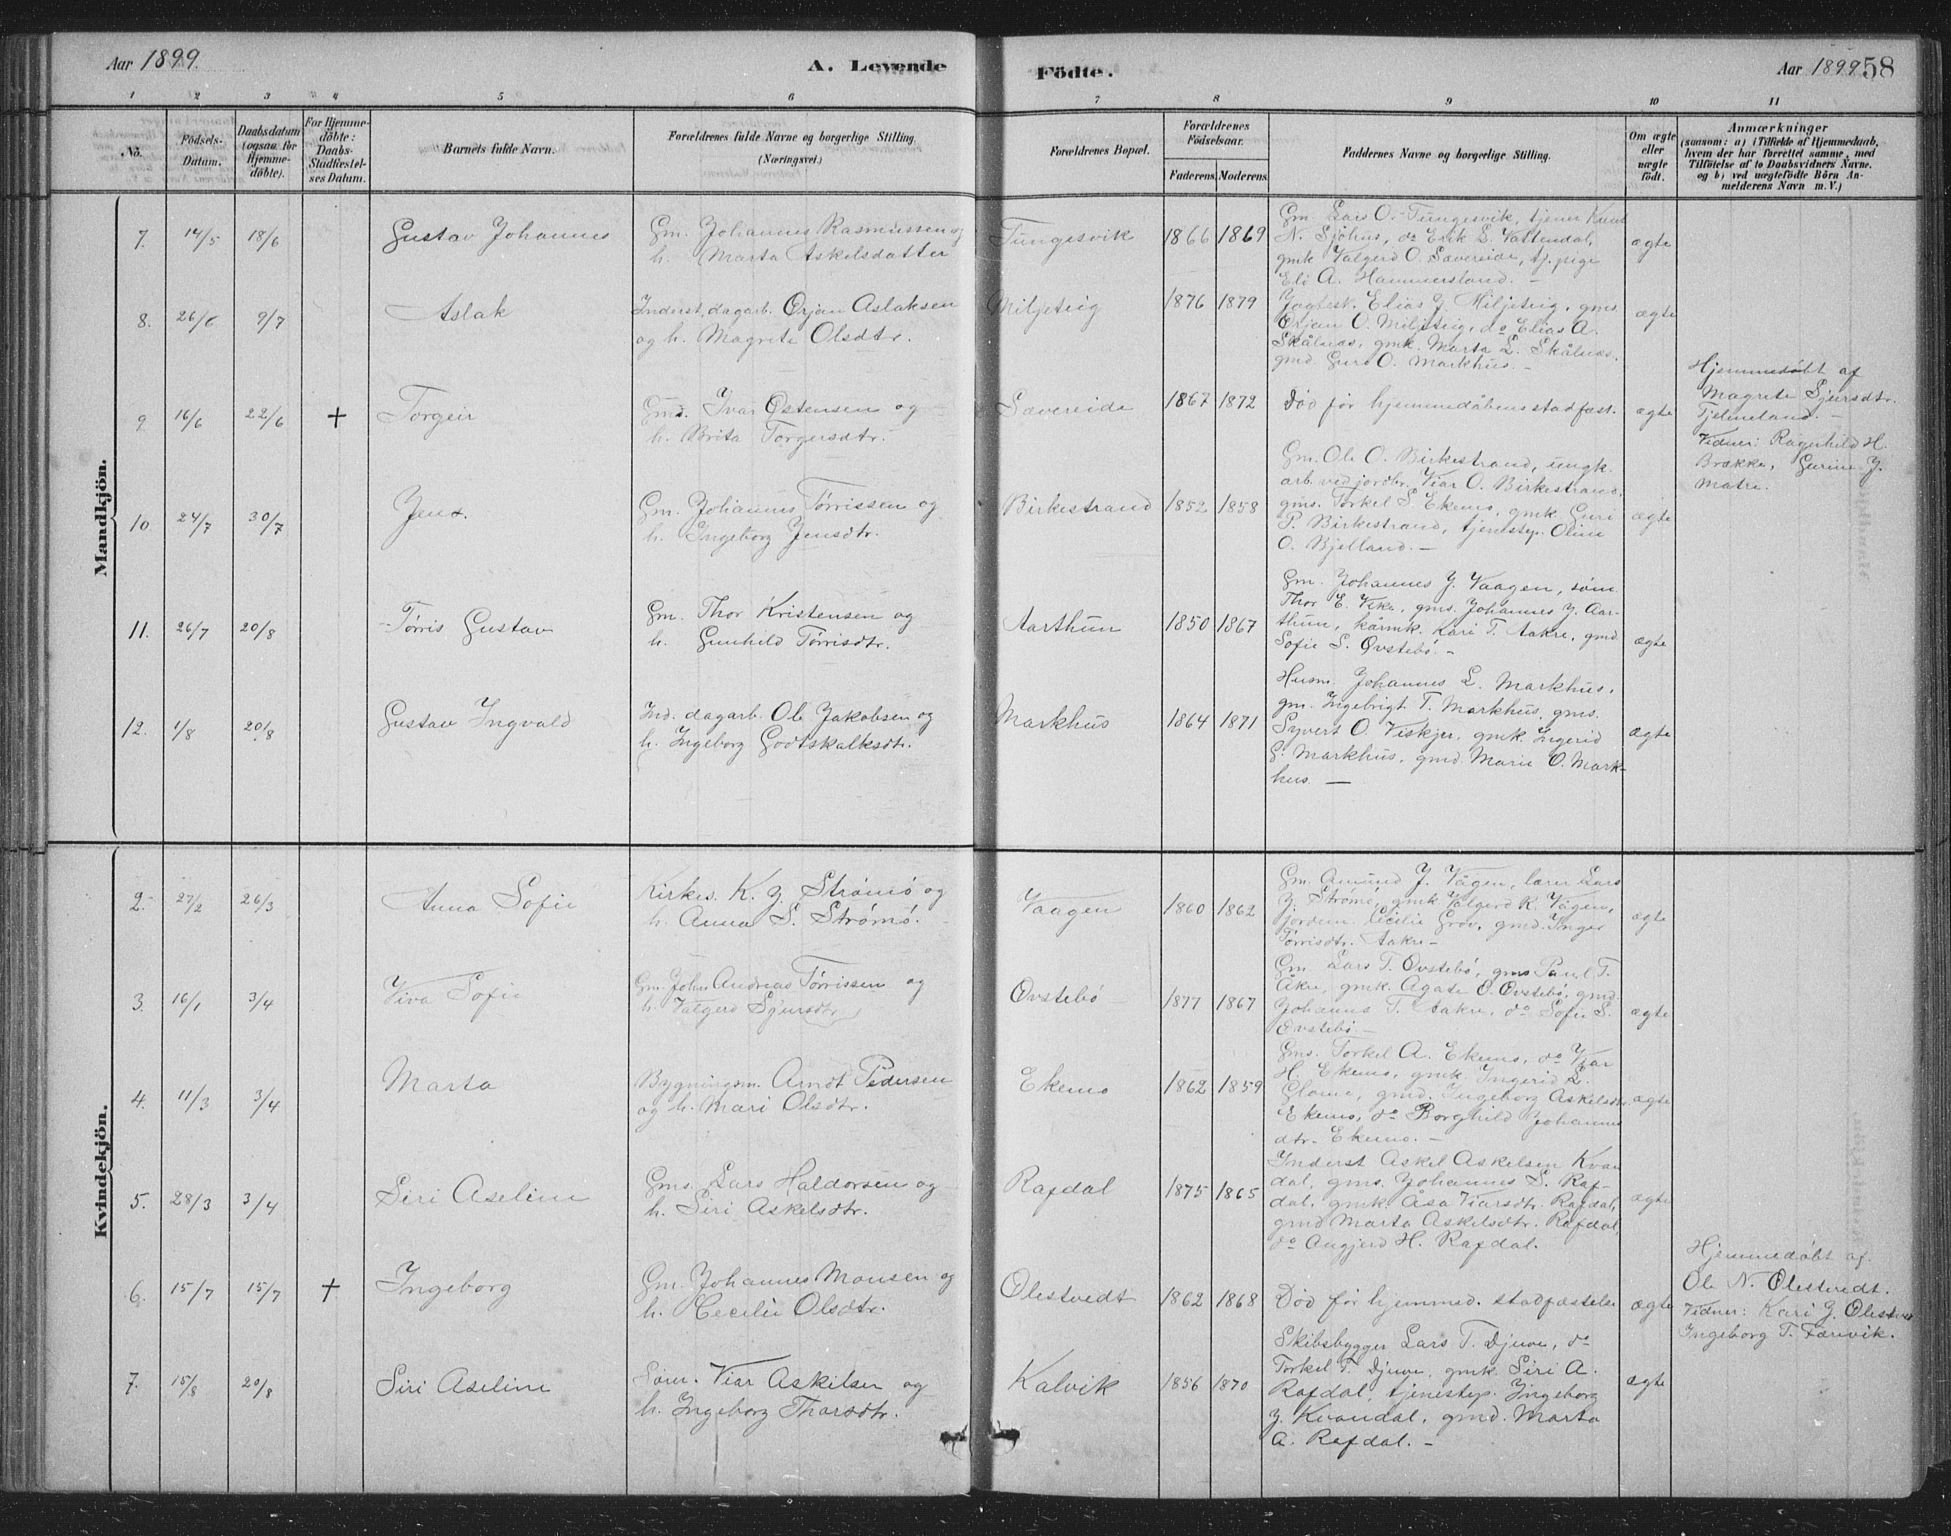 Aar 1899.
A. Levende
Födte.
Aar 1899
58
1 2 3 4 5 6 7 8 9 10 11
No.
Födsels-
Datum.
Daabsdatum
(ogsaa for
Hjemme-
döbte).
For Hjemme-
döbte:
Daabs-
Stadfæstel-
ses Datum.
Barnets fulde Navn.
Forældrenes fulde Navne og borgerlige Stilling.
(Næringsvei.)
Forældrenes Bopæl.
Forældrenes
Födselsaar.
Faderens. Moderens.
Faddernes Navne og borgerlige Stilling.
Om ægte
eller
uægte
födt.
Anmærkninger
(saasom: a) i Tilfælde af Hjemmedaab,
hvem der har forrettet samme, med
Tilföielse af to Daabsvidners Navne.
og b) ved uægtefödte Börn An-
melderens Navn m. V.)
Mandkjön.
7. 14/5 18/6 Gustav Johannes
Gm. Johannes Rasmussen og
h. Marta Askelsdatter
Tungesvik 1866 1869
Gm. Lars O. Tungesvik, tjener Knut
N. Sjöhus, do Erik L. Vattendal,
gmk Valgerd O. Sævereide, tj. pige
Eli A. Hammersland. –
ægte
8. 26/6 9/7 Aslak
Inderst, dagarb. Örjan Aslaksen
og h. Magrete Olsdtr.
Miljeteig 1876 1879
Elias J. Miljeteig, gms.
Örjan O. Miljeteig, do Elias A.
Skålnæs, gmk. Marta L. Skålnæs,
gmd. Guro O. Markhus. –
ægte
9. 16/6 22/6 + Torgeir
Gmd. Ivar Östensen og
h. Brita Torgersdtr.
Sævereide 1867 1872
Död för hjemmedåbens stadfæst.
ægte
Hjemmedöbt af
Magrete Sjursdtr.
Tjelmeland. –
Vidner: Ragnhild H.
Brække, Gurine J.
Matre.
10. 24/7 30/7 Jens.
Gm. Johannes Tørrissen og
h. Ingeborg Jensdtr.
Birkestrand 1852 1858
Gm. Ole O. Birkestrand, ungk.
arb. ved jordbr. Viar O. Birkestrand,
gms. Torkel S. Ekemo, gmk. Guri
P. Birkestrand, tjenestep. Oline
O. Bjelland. –
ægte
11. 26/7 20/8 Törris Gustav
Gm. Thor Kristensen og
h. Gunhild Törrisdtr.
Aarthun 1850 1867
Gm. Johannes J. Vaagen, søm.
Thor E. Vika, gms. Johannes J. Aar-
thun, kårmk. Kari T. Aakre, gmd.
Sofie S. Øvstebö. –
ægte
12. 1/8 20/8 Gustav Ingvald
Ind. dagarb. Ole Jakobsen og
h. Ingeborg Godtskalksdtr.
Markhus 1864 1871
Husm. Johannes L. Markhus,
gm. Ingebrigt T. Markhus, gms.
Syvert O. Viskjer, gmk. Ingerid
G. Markhus, gmd. Marie O. Mark-
hus. –
ægte
Kvindekjön.
2. 27/2 26/3 Anna Sofie
Kirkes. K. J. Strømö og
h. Anna S. Strømö.
Vaagen 1860 1862
Gm. Amund J. Vågen, lærer Lars
J. Strømö, gmk Valgerd K. Vågen,
jordm. Cecilie Grov, gmd. Inger
Törrisdtr. Aakre –
ægte
3. 16/1 3/4 Viva Sofie
Gm. John Andreas Törrissen og
h. Valgerd Sjursdtr.
Øvstebö 1877 1867
Gm. Lars T. Øvstebö, gms Paul T.
Åkre, gmk. Agate O. Øvstebö, gmd.
Johannes T. Aakre, do Sofie S.
Øvstebö. –
ægte
4. 11/3 3/4 Marta
Bygningsm. Arndt Pedersen
og h. Mari Olsdtr.
Ekemo 1862 1859
Gms. Torkel A. Ekemo, do Viar
H. Ekemo, gmk. Ingerid L.
gmd. Ingeborg Askelsdtr.
Ekemo, do Borghild Johannes
dtr. Ekemo. –
ægte
5. 28/3 3/4 Siri Aseline
Gms. Lars Haldorsen og
h. Siri Askelsdtr.
Rafdal 1875 1865
Inderst Askel Askelsen Kvan
dal, gms. Johannes S. Raf-
dal, gmk. Åsa Viarsdtr. Rafdal,
gmd Marta Askelsdtr. Rafdal,
do Angjerd H. Rafdal.
ægte
6. 15/7 15/7 + Ingeborg
Gm. Johannes Monsen og
h. Cecilie Olsdtr.
Ölestvedt 1862 1868
Död för hjemmed. stadfæstelse
ægte
Hjemmedöbt af
Ole N. Ölestvedt.
Vidner: Kari J. Ölestv.
Ingeborg T. Færevik.
7. 15/8 20/8 Siri Aseline
Søm. Viar Askelsen og
h. Ingeborg Thorsdtr.
Kalvik 1856 1870
Skibsbygger Lars T. Djuve, do
Torkel T. Djuve, gmk. Siri A.
Rafdal, tjenestep. Ingeborg
J. Kvandal, gmd. Marta
A. Rafdal. –
ægte